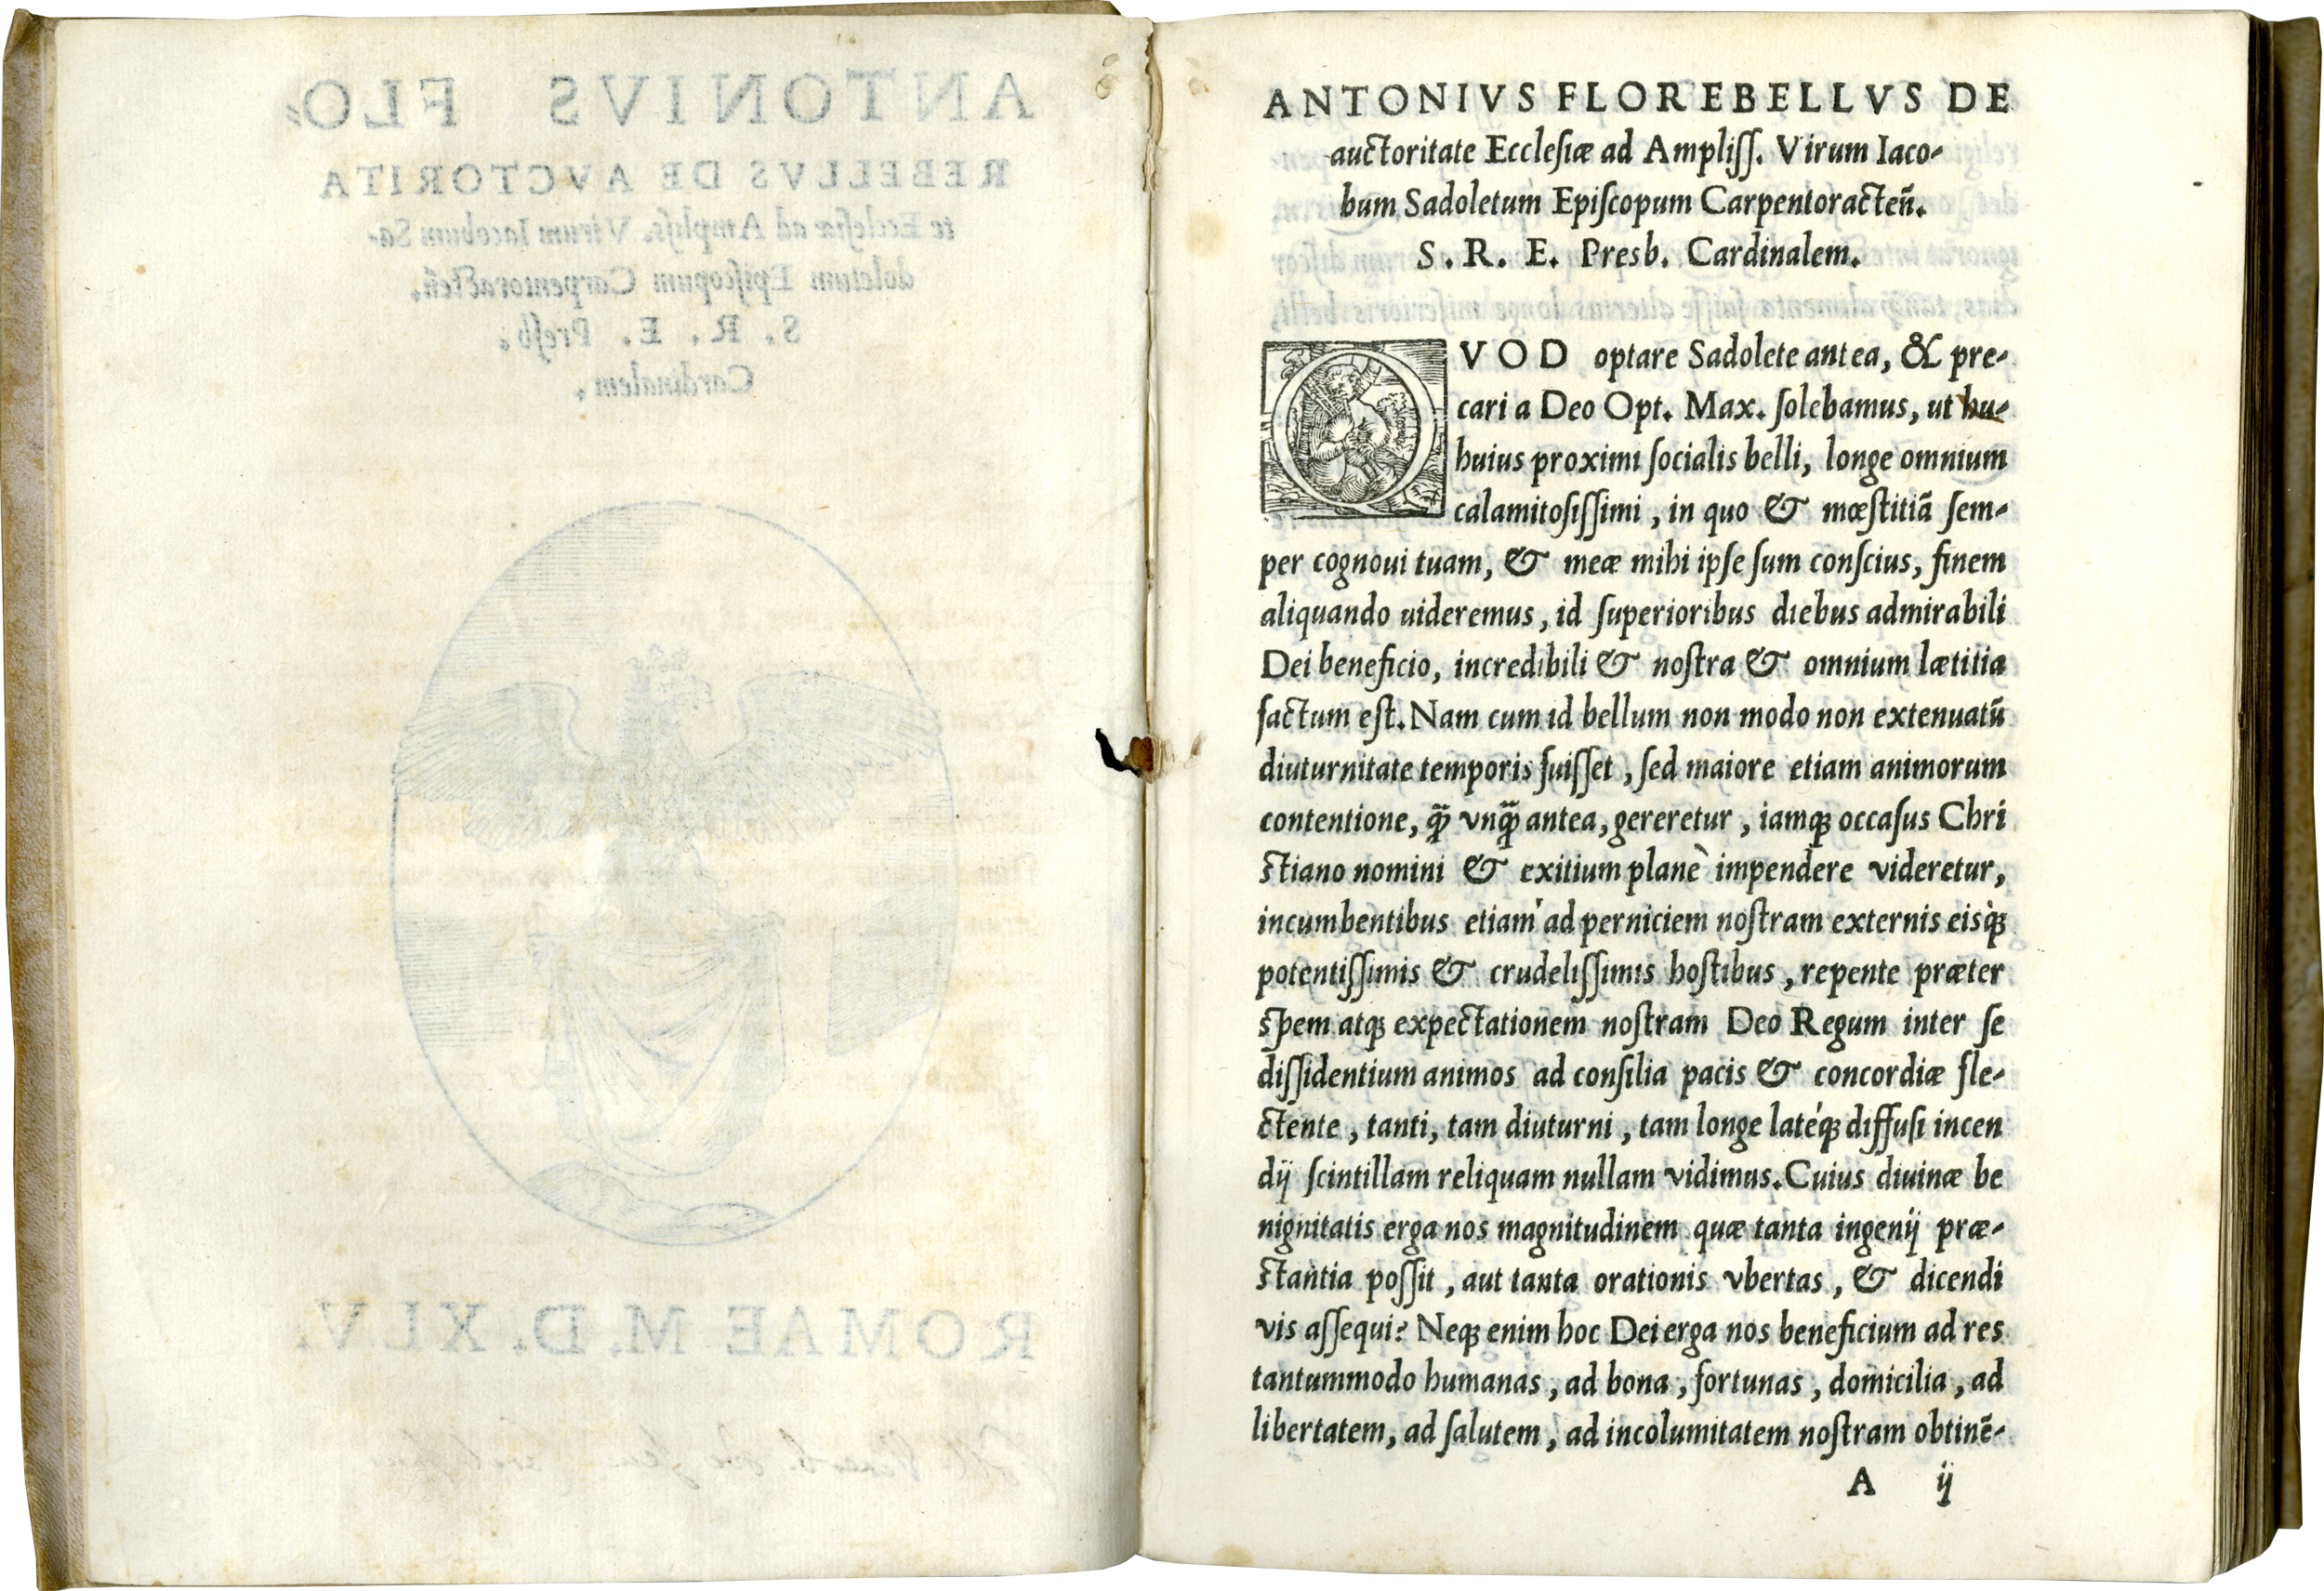 ANTONIVS FLO-
REBELLVS DE AVCTORITA
te Ecclesiæ ad Ampliſſ. Virum Iacobum Sa-
doletum Epiſcopum Carpentoracteñ.
S. R. E. Preſb.
Cardinalem.
ROMAE M. D. XLV.
ANTONIVS FLOREBELLVS DE
auctoritate Eccleſiæ ad Ampliſſ. Virum Iaco-
bum Sadoletum Epiſcopum Carpentoracteñ.
S. R. E. Presb. Cardinalem.
QVOD optare Sadolete antea, & pre-
cari a Deo Opt. Max. ſolebamus, ut hu-
huius proximi ſocialis belli, longe omnium
calamitoſiſſimi, in quo & mœſtitiã ſem-
per cognoui tuam, & meæ mihi ipſe ſum conſcius, finem
aliquando uideremus, id ſuperioribus diebus admirabili
Dei beneficio, incredibili & noſtra & omnium lætitia
factum eſt. Nam cum id bellum non modo non extenuatũ
diuturnitate temporis fuiſſet, ſed maiore etiam animorum
contentione, q̃ȝ vnq̃ȝ antea, gereretur, iamqȝ occaſus Chri
ſtiano nomini & exitium planè impendere videretur,
incumbentibus etiam ad perniciem noſtram externis eisqȝ
potentiſſimis & crudeliſſimis hoſtibus, repente præter
ſpem atqȝ expectationem noſtram Deo Regum inter ſe
diſſidentium animos ad conſilia pacis & concordiæ fle-
ctente, tanti, tam diuturni, tam longe latéqȝ diffuſi incen
dij ſcintillam reliquam nullam vidimus. Cuius diuinæ be
nignitatis erga nos magnitudinem quæ tanta ingenij præ-
ſtantia poſſit, aut tanta orationis vbertas, & dicendi
vis aſſequi? Neqȝ enim hoc Dei erga nos beneficium ad res
tantummodo humanas, ad bona, fortunas, domicilia, ad
libertatem, ad ſalutem, ad incolumitatem noſtram obtinẽ-
A ij